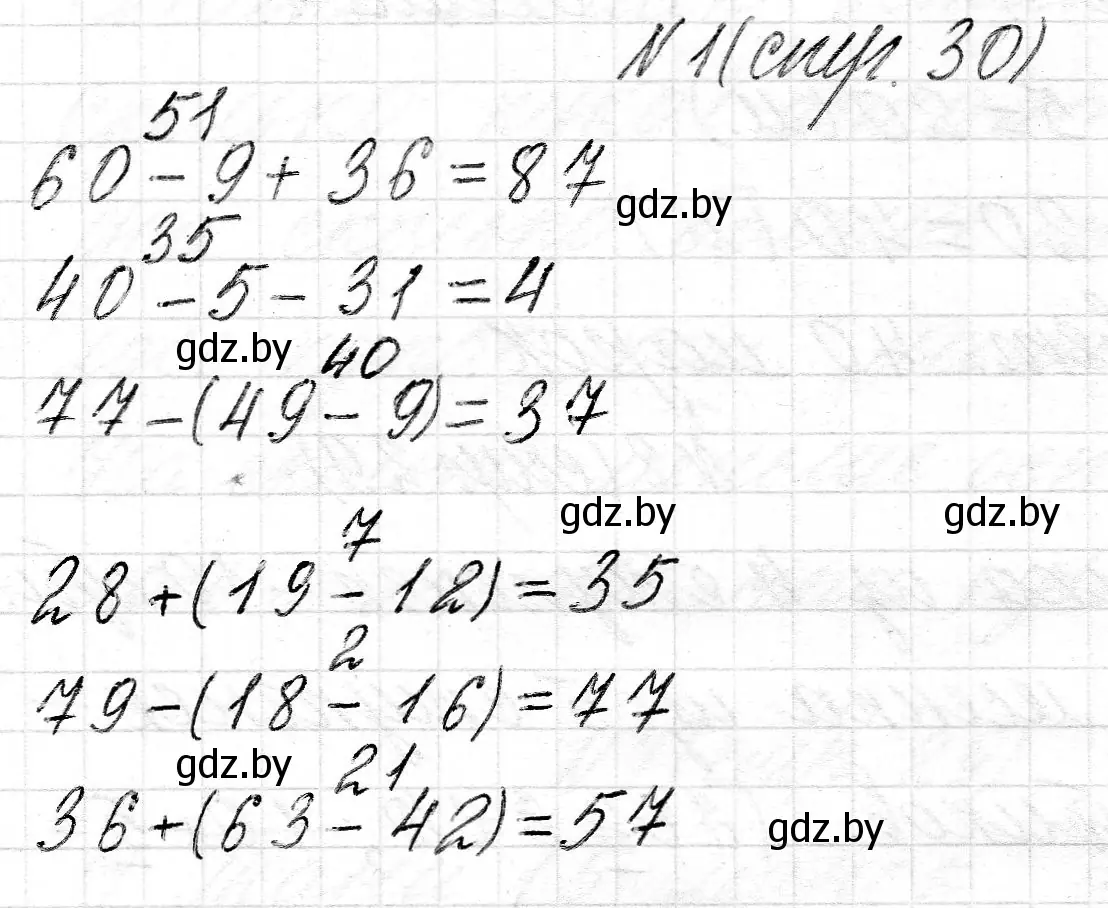 N 1 (стр. 30)
51
60 - 9 + 36 = 87
gdz.by
35
40 - 5 - 31 = 4
gdz.by
40
77 - (49 - 9) = 37
gdz.by gdz.by
7
28 + (19 - 12) = 35
2
79 - (18 - 16) = 77
gdz.by
21
36 + (63 - 42) = 57
gdz.by